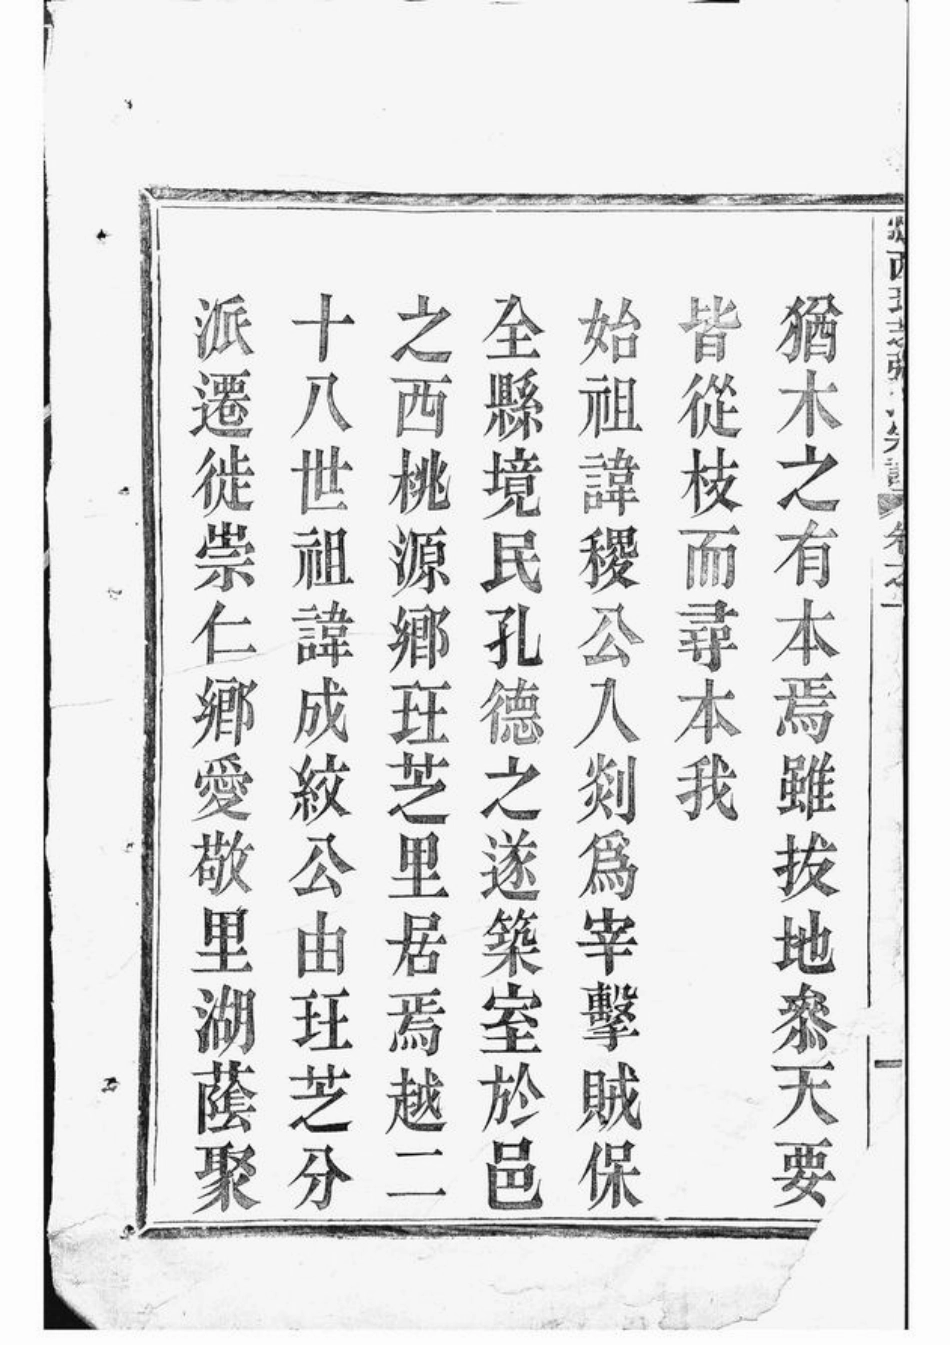 猶木之有本焉雖拔地叅天要
皆從枝而尋本我
始祖諱稷公入剡爲宰擊賊保
全縣境民孔德之遂築室於邑
之西桃源鄉玨芝里居焉越二
十八世祖諱成絞公由玨芝分
派遷徙崇仁鄉愛敬里湖蔭聚